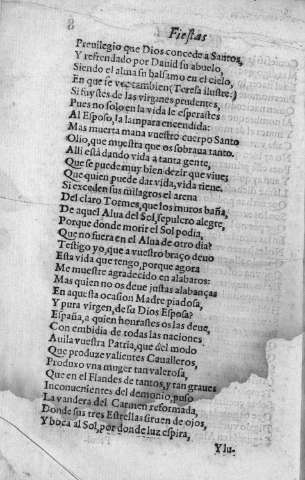 8
Fiestas
Preuilegio que Dios concede a Santos,
Y refrendado por Dauid su abuelo,
Siendo el alma su balsamo en el cielo,
En que se vee tambien (Teresa ilustre:)
Si fuystes de las virgines prudentes,
Pues no solo en la vida le esperastes
Al Esposo, la lampara encendida:
Mas muerta mana vuestro cuerpo Santo
Olio, que muestra que os sobraua tanto.
Alli està dando vida a tanta gente,
Que se puede muy bien dezir que viues
Que quien puede dar vida, vida tiene.
Si exceden sus milagros el arena
Del claro Tormes, que los muros baña,
De aquel Alua del Sol, sepulcro alegre,
Porque donde morir el Sol podia,
Que no fuera en el Alua de otro dia?
Testigo yo, que a vuestro braço deuo
Esta vida que tengo, porque agora
Me muestre agradecido en alabaros:
Mas quien no os deue justas alabanças
En aquesta ocasion Madre piadosa,
Y pura virgen, de su Dios Esposa?
España, a quien honrastes os las deue,
Con embidia de todas las naciones
Auila vuestra Patria, que del modo
Que produze valientes Caualleros,
Produxo vna muger tan valerosa,
Que en el Flandes de tantos, y tan graues
Inconuenientes del demonio, puso
La vandera del Carmen reformada,
Donde sus tres Estrellas siruen de ojos,
Y boca al Sol, por donde luz espira,
Y lu-